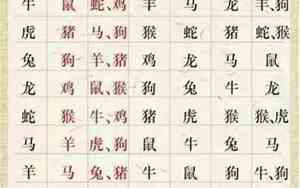 牛 鼠 蛇、鸡 羊 马 龙 羊、狗
虎 猪 马、狗 猴 蛇 猪 蛇、猴
兔 狗 羊、猪 鸡 龙 马 鼠
龙 鸡 鼠、猴 狗 兔 牛 龙
蛇 猴 牛、鸡 猪 虎 猴 虎、猴
马 羊 虎、狗 鼠 牛 兔 马
羊 马 兔、猪 牛 鼠 鼠 牛、狗